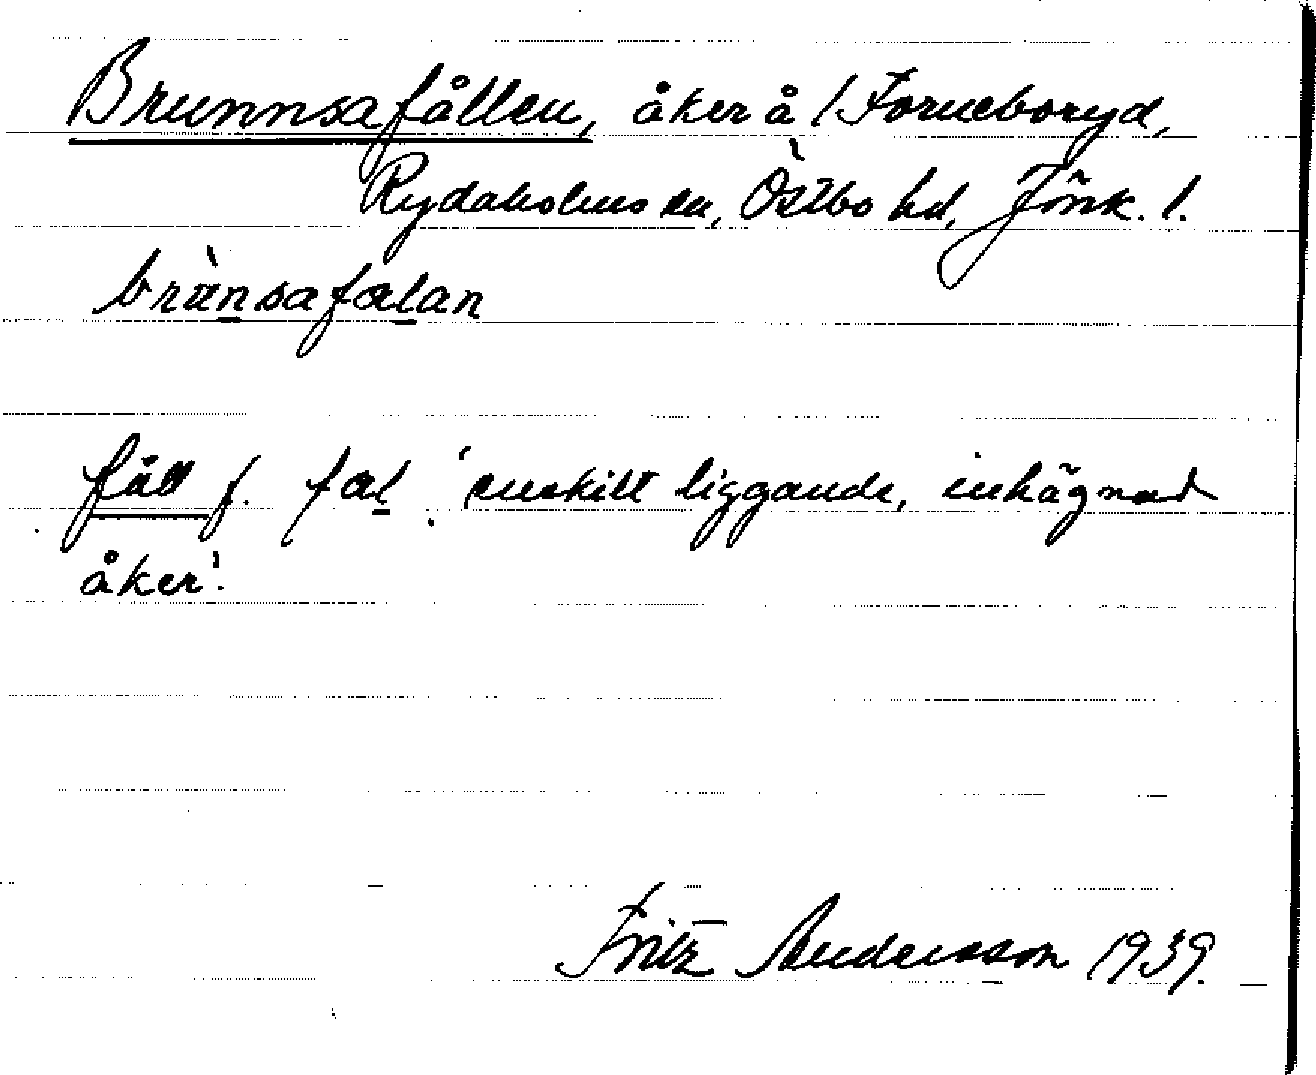 Brunnsafållen, åker å / Forneboryd,
Rydaholms sn, Östbo hd, Jönk. l.
brunsafalan
fåll f. fal 'enskilt liggande, inhägnad
åker'.
Fritz Andersson 1939.